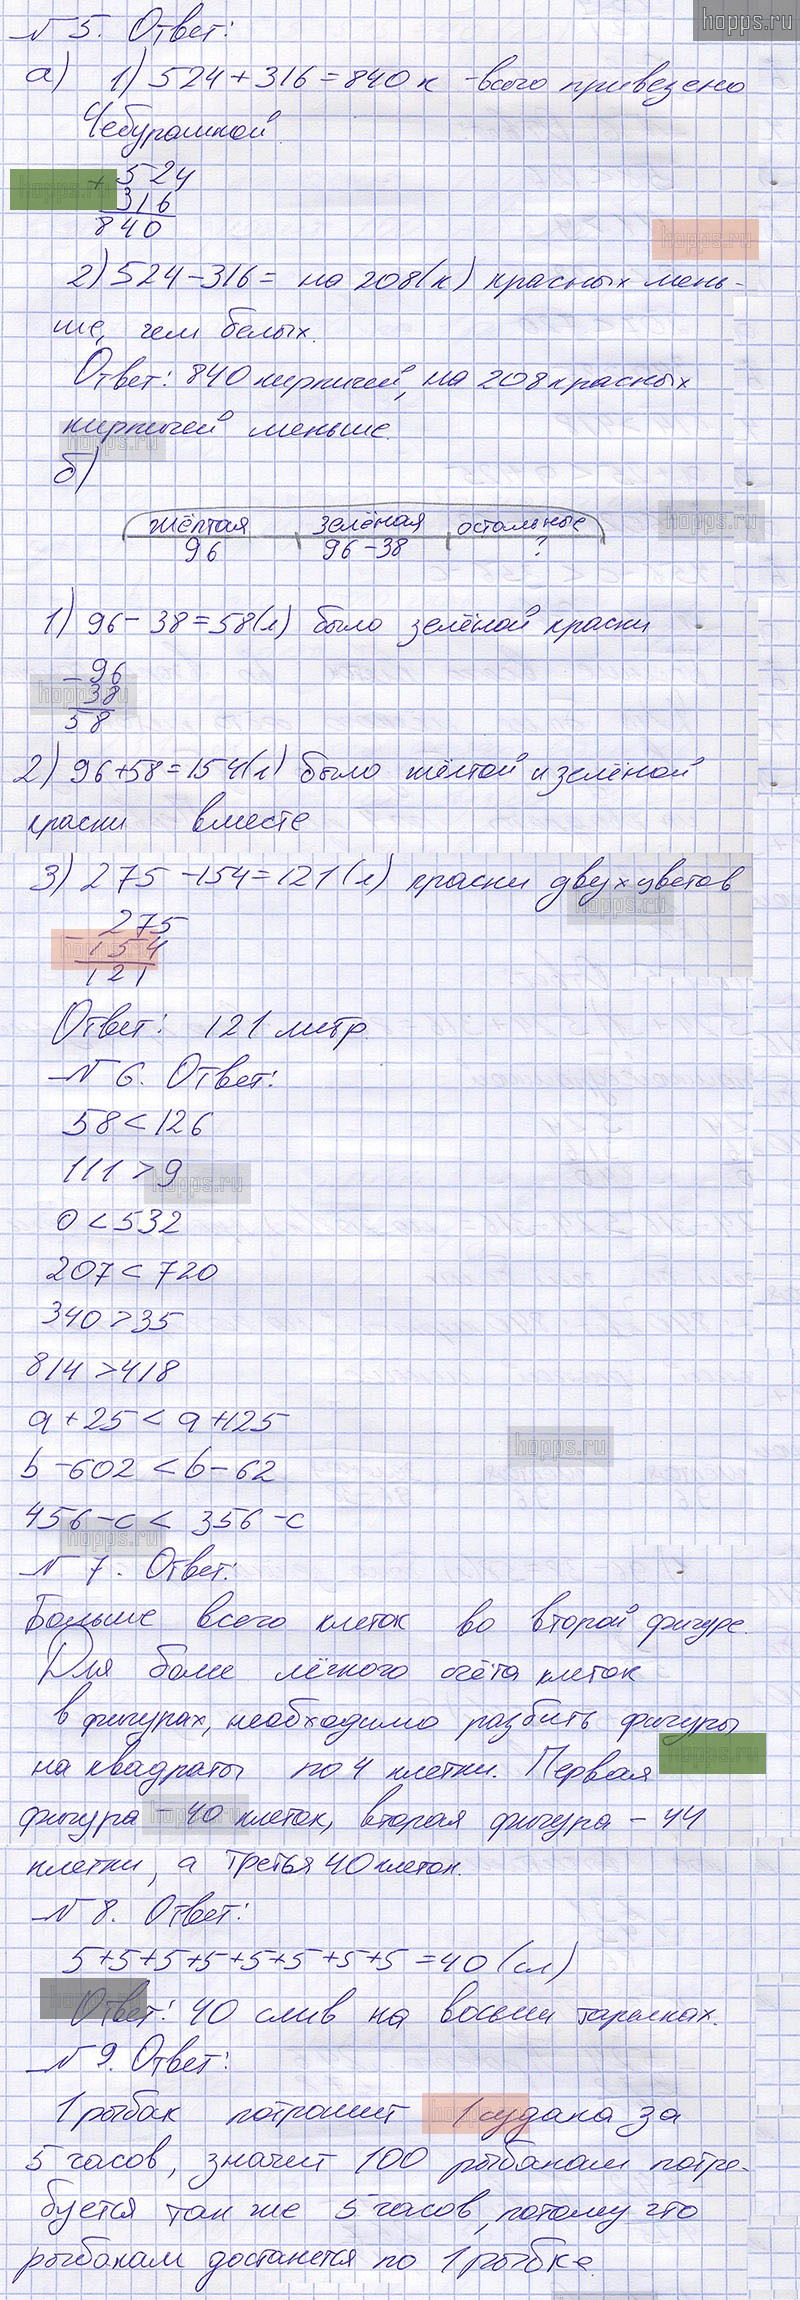 hopps.ru
№ 5. Ответ:
а) 1) 524 + 316 = 840 к - всего привезено
Чебурашкой.
+ 524
316
840
2) 524 - 316 = на 208 (к) красных мень-
ше, чем белых.
Ответ: 840 кирпичей, на 208 красных
кирпичей меньше.
б)
жёлтая зелёная остальные
96 96 - 38 ?
1) 96 - 38 = 58 (л) было зелёной краски
- 96
38
58
2) 96 + 58 = 154 (л) было жёлтой и зелёной
краски вместе
3) 275 - 154 = 121 (л) краски двух цветов
- 275
154
121
Ответ: 121 литр.
№ 6. Ответ:
58 < 126
111 > 9
0 < 532
207 < 720
340 > 35
814 > 418
a + 25 < a + 125
b - 602 < b - 62
456 - c < 356 - c
№ 7. Ответ:
Больше всего клеток во второй фигуре.
Для более лёгкого счёта клеток
в фигурах, необходимо разбить фигуры
на квадраты по 4 клетки. Первая
фигура - 40 клеток, вторая фигура - 44
клетки, а третья 40 клеток.
№ 8. Ответ:
5 + 5 + 5 + 5 + 5 + 5 + 5 + 5 = 40 (сл)
Ответ: 40 слив на восьми тарелках.
№ 9. Ответ:
1 рыбак потрошит 1 судака за
5 часов, значит 100 рыбакам потре-
буется так же 5 часов, потому что
рыбакам достанется по 1 рыбке.